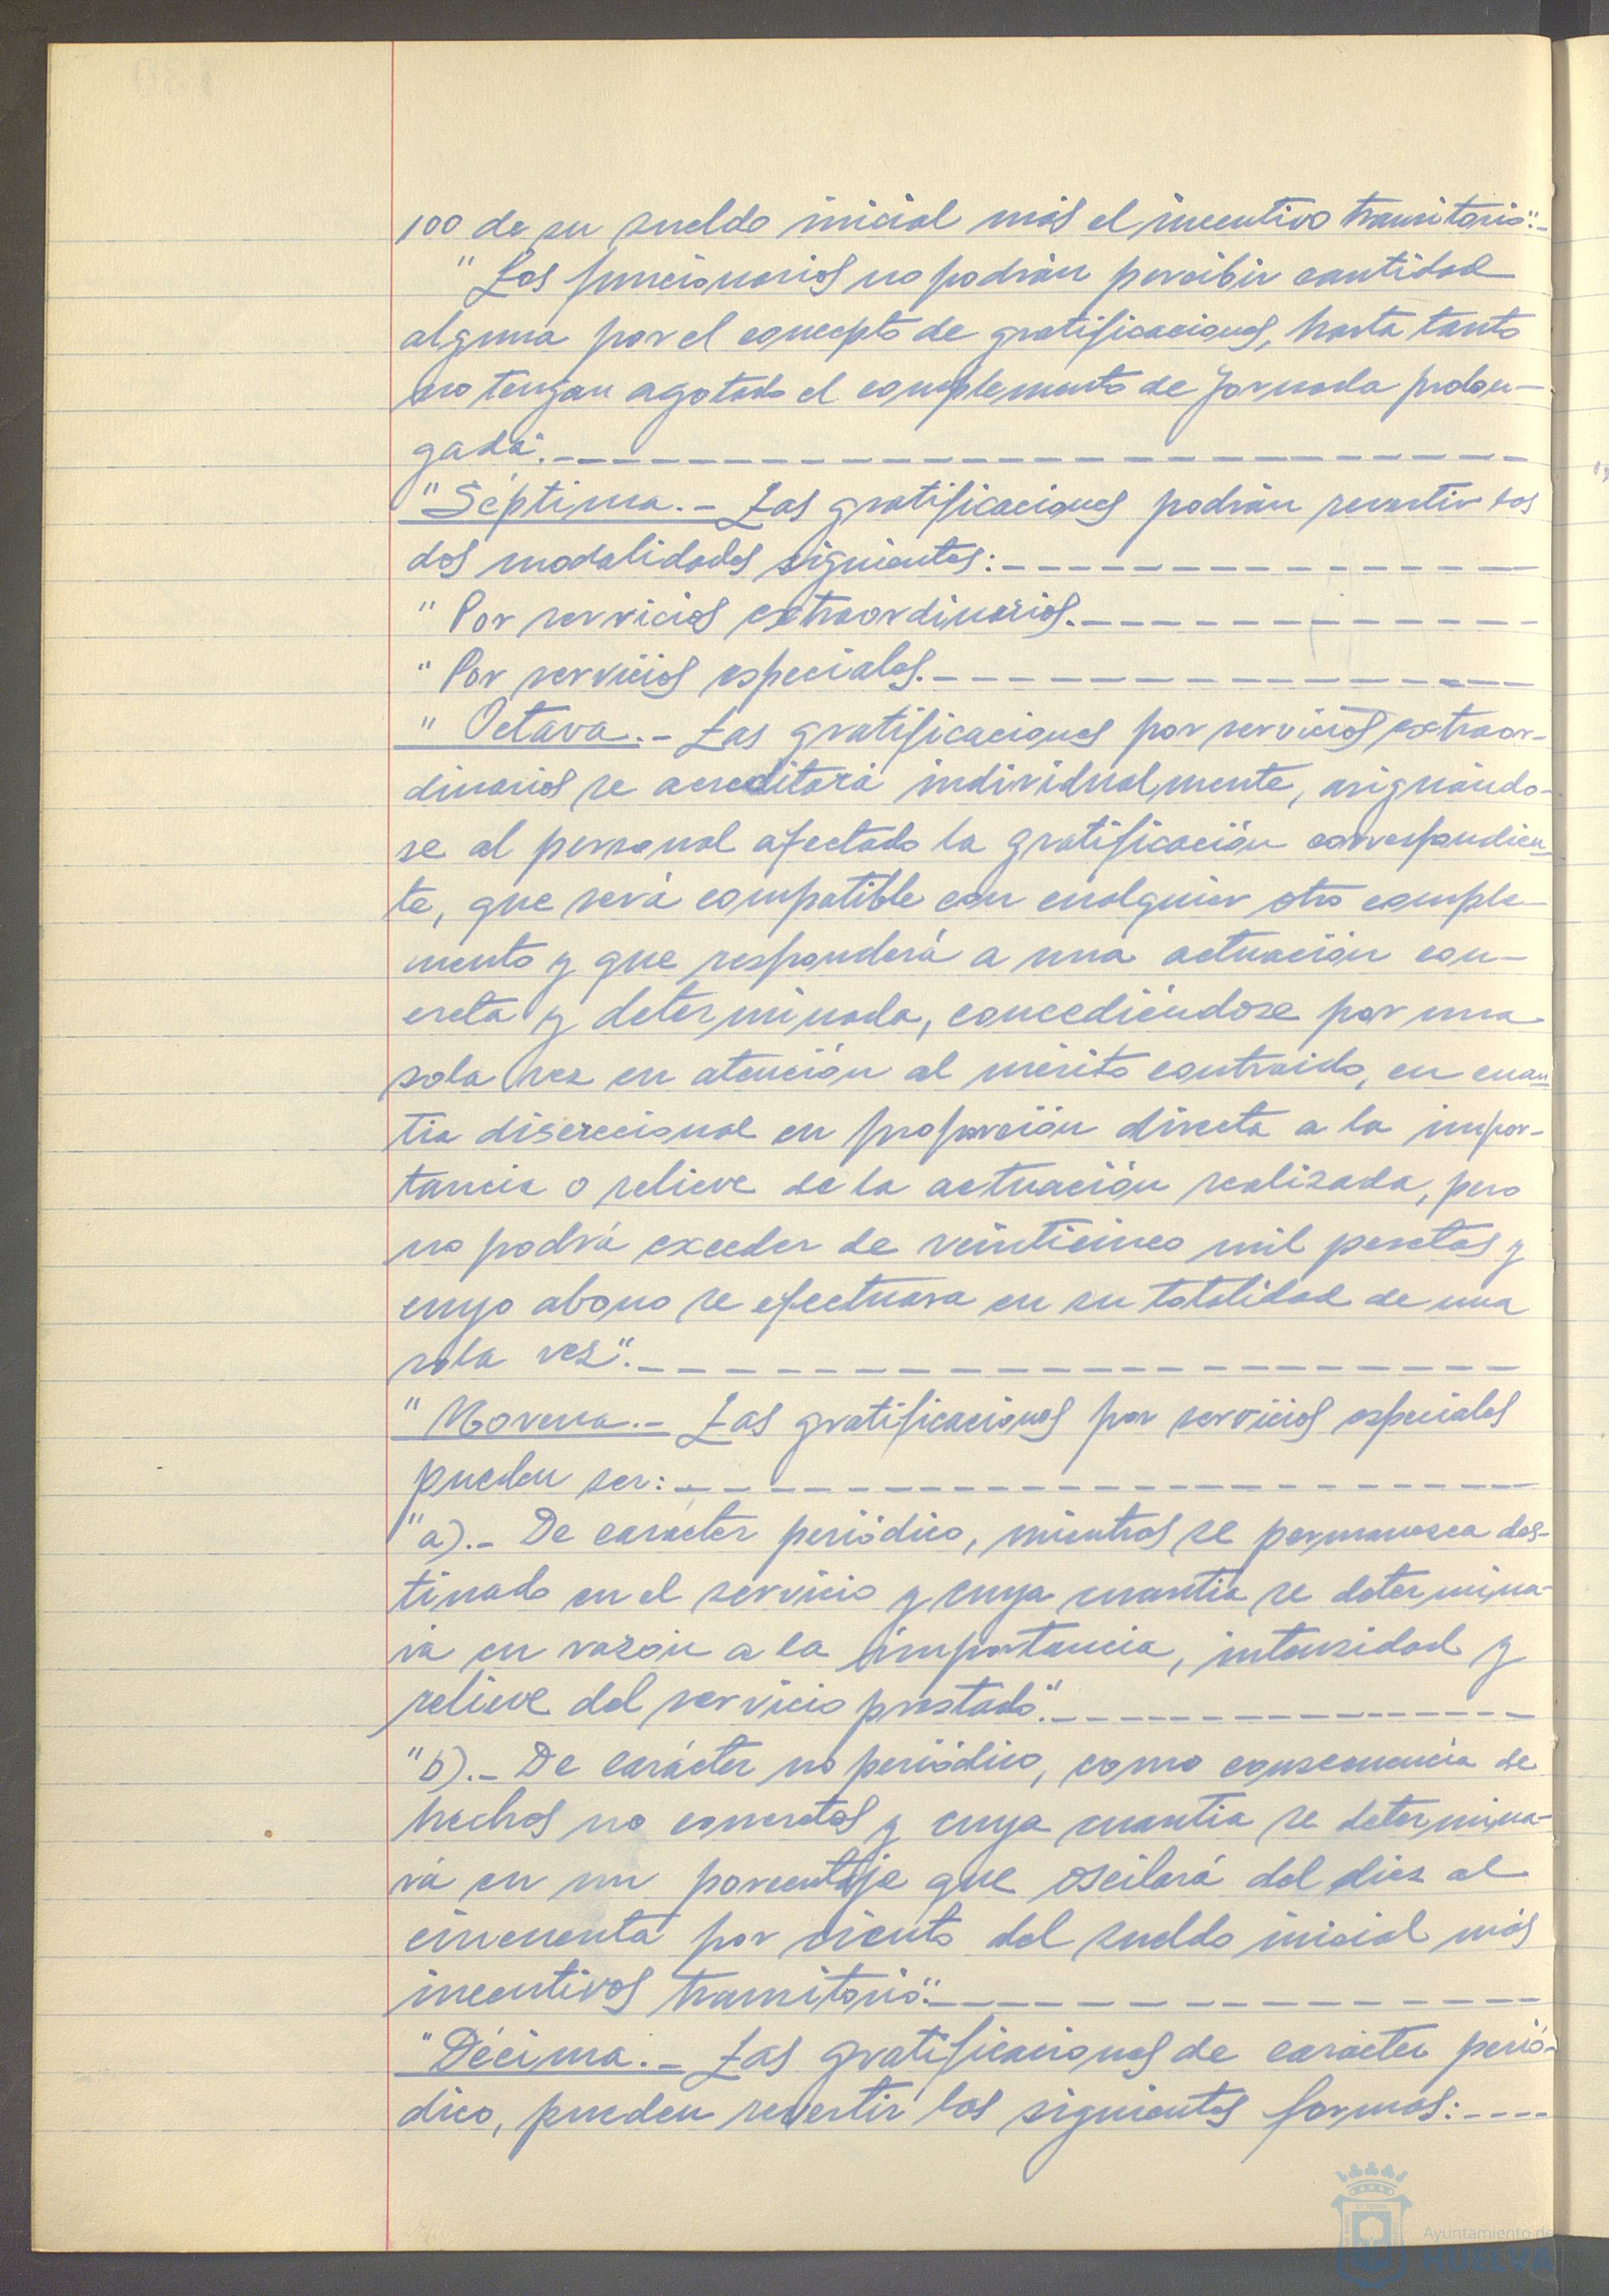 100 de su sueldo inicial más el incentivo transitorio".-
" Los funcionarios no podrán percibir cantidad
alguna por el concepto de gratificaciones, hasta tanto
no tengan agotado el complemento de jornada prolon-
gada".-
"Séptima.- Las gratificaciones podrán revestir las
dos modalidades siguientes:-
" Por servicios extraordinarios.-
" Por servicios especiales.-
" Octava.- Las gratificaciones por servicios extraor-
dinarios se acreditará individualmente, asignándo-
se al personal afectado la gratificación correspondien-
te, que será compatible con cualquier otro comple-
mento y que responderá a una actuación con-
creta y determinada, concediéndose por una
sola vez en atención al mérito contraido, en cuan-
tia discrecional en proporción directa a la impor-
tancia o relieve de la actuación realizada, pero
no podrá exceder de veinticinco mil pesetas y
cuyo abono se efectuara en su totalidad de una
sola vez".-
"Novena.- Las gratificaciones por servicios especiales
pueden ser:-
"a).- De carácter periódico, mientras se permanezca des-
tinado en el servicio y cuya cuantia se determina-
rá en razón a la importancia, intensidad y
relieve del servicio prestado".-
"b).- De carácter no periódico, como consecuencia de
hechos no concretos y cuya cuantia se determina-
rá en un porcentaje que oscilará del diez al
cincuenta por ciento del sueldo inicial más
incentivos transitorio".-
"Décima.- Las gratificaciones de carácter perió-
dico, pueden revertir las siguientes formas:-
Ayuntamiento de
HUELVA